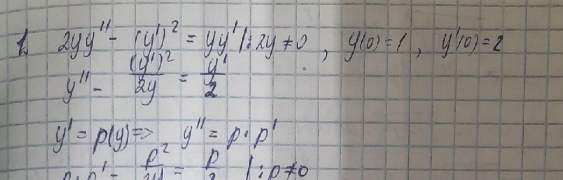 1. 2yy'' - (y')² = yy' |:2y ≠ 0, y(0) = 1, y'(0) = 2
y'' - (y')²/2y = y'/2
y' = p(y) => y'' = p · p'
p · p' - p²/2y = p/2 |:p ≠ 0